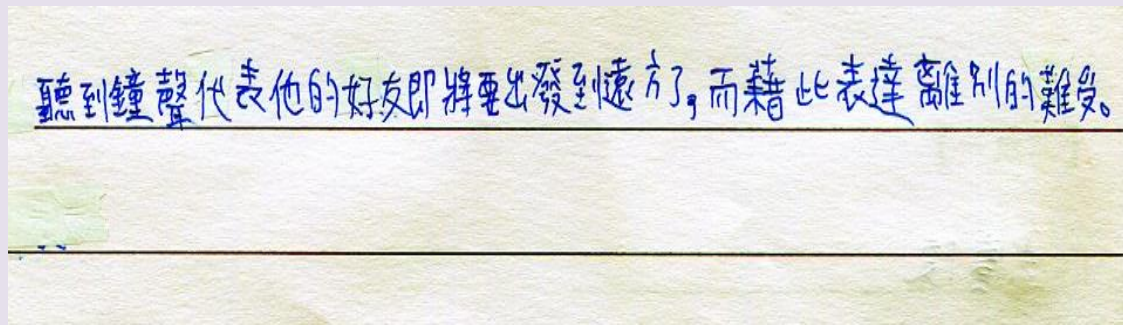 聽到鐘聲代表他的好友即將要出發到遠方了，而藉此表達離別的難受。